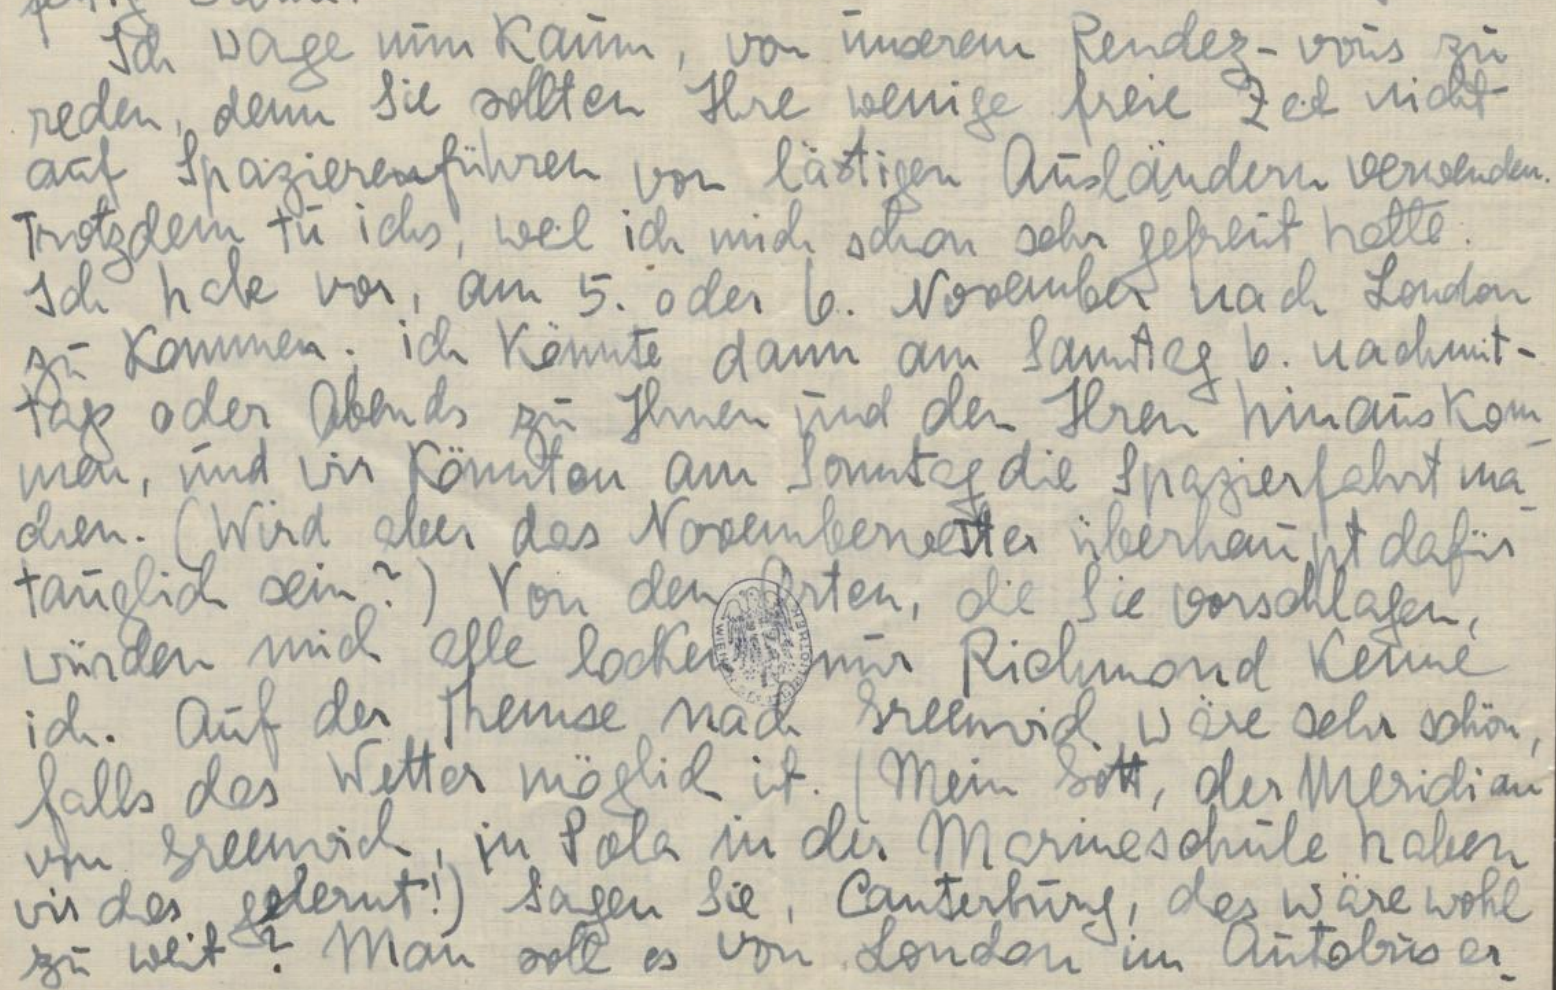 Ich wage nun kaum, von unserem Rendez-vous zu
reden, denn Sie sollten Ihre wenige freie Zeit nicht
auf Spazierenführen von lästigen Ausländern verwenden.
Trotzdem tu ichs, weil ich mich schon sehr gefreut hatte.
Ich habe vor, am 5. oder 6. November nach London
zu kommen. ich könnte dann am Samstag 6. nachmit-
tags oder Abends zu Ihnen und den Ihren hinauskom-
men, und wir könnten am Sonntag die Spazierfahrt ma-
chen. (Wird aber das Novemberwetter überhaupt dafür
tauglich sein?) Von den Orten, die Sie vorschlagen,
würden mich alle locken nur Richmond kenne
ich. Auf der Themse nach Greenwich wäre sehr schön,
falls das Wetter möglich ist. (Mein Gott, der Meridian
von Greenwich, in Pola in der Marineschule haben
wir das gelernt!) Sagen Sie, Canterbury, das wäre wohl
zu weit? Man soll es von London im Autobus er-